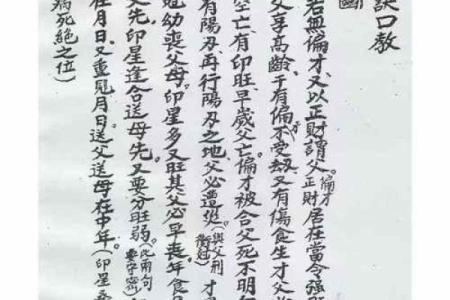 訣口教
國
若無偏才又以正財謂父偏才正財居在當令強
父享高齡干有偏才不受劫又有傷食生才父
空亡有印旺早歲父亡偏才被合父死不明
有陽刃再行陽刃之地父必遭災(與父刑衝尅)才
尅幼喪父母印星多又旺其父必早喪年
父先印星逢合送母先又要分旺弱(此兩句要守密)
在月日又重見月日送父送母在中年(印星
病死絕之位)